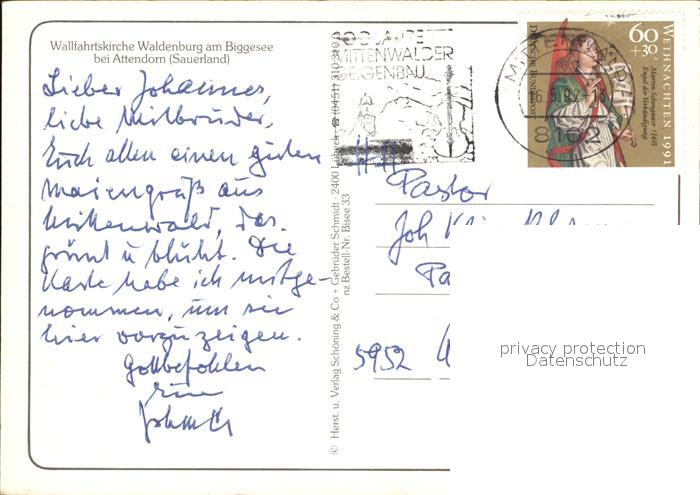 Wallfahrtskirche Waldenburg am Biggesee
bei Attendorn (Sauerland)
Lieber Johannes,
liebe Mitbrüder,
Euch allen einen guten
Maiengruß aus
Mittenwald, das
grünt u blüht. Die
Karte habe ich mitge-
nommen, um sie
hier vorzuzeigen.
Gottbefohlen
Euer
© Herst. u. Verlag Schöning & Co + Gebrüder Schmidt · 2400 Lübeck ☎ (0451)
nz Bestell-Nr. Bisee 33
300 JAHRE
MITTENWALDER
GEIGENBAU
MITTENWALD
8102
60
+30
WEIHNACHTEN 1991
Martin Schongauer †1491
Engel der Verkündigung
DEUTSCHE BUNDESPOST
Pastor
Joh
Pa
5952
privacy protection
Datenschutz